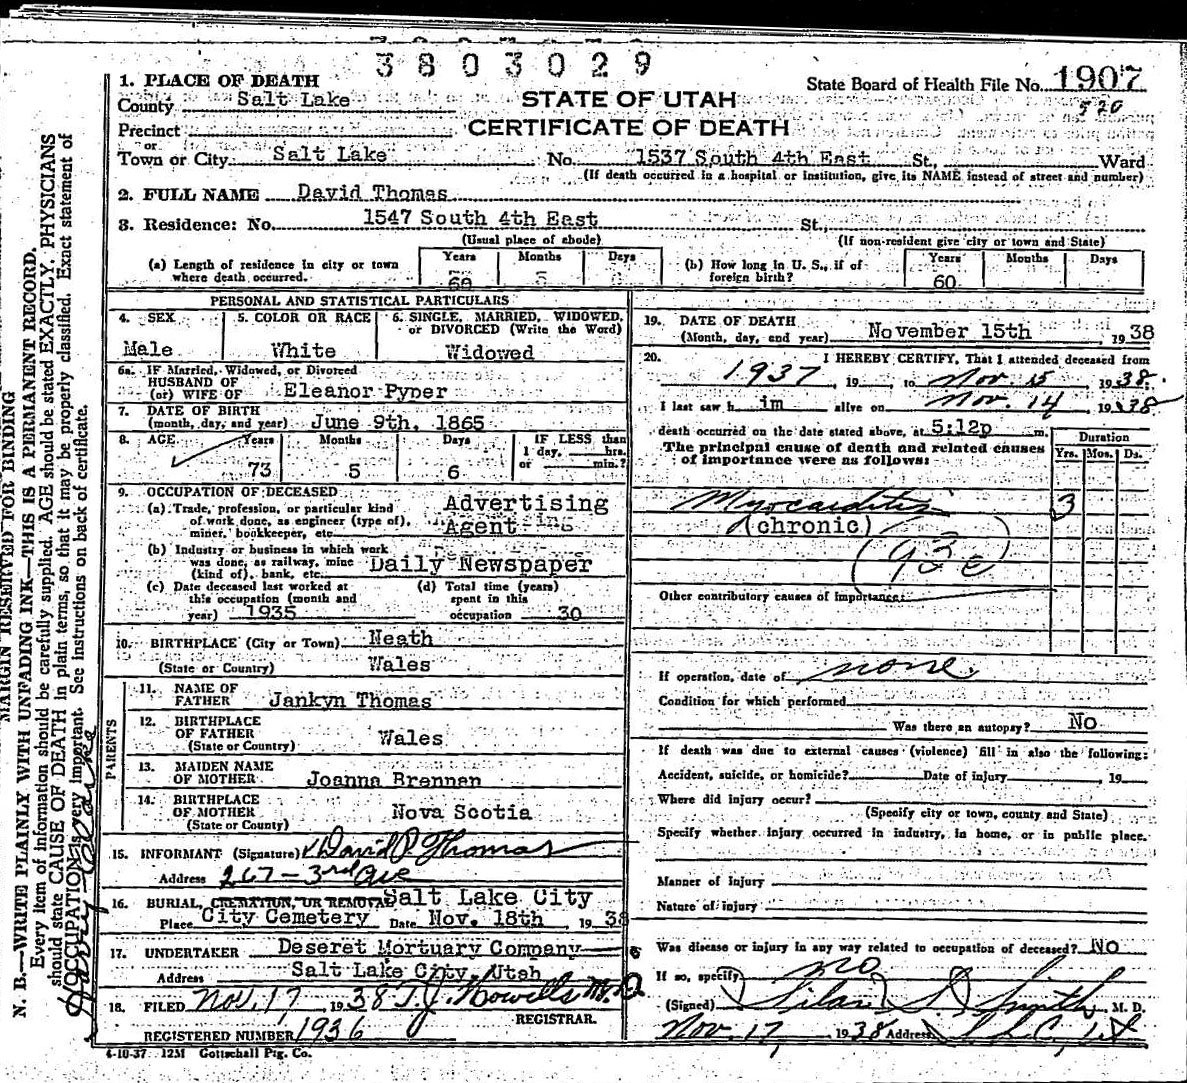 3803029
1. PLACE OF DEATH
State Board of Health File No. 1907
County Salt Lake
STATE OF UTAH
520
Precinct
CERTIFICATE OF DEATH
or
Town or City Salt Lake No. 1537 South 4th East St., Ward
(If death occurred in a hospital or institution, give its NAME instead of street and number)
2. FULL NAME David Thomas
3. Residence: No. 1547 South 4th East St.,
(Usual place of abode) (If non-resident give city or town and State)
(a) Length of residence in city or town where death occurred. Years 60 Months 5 Days
(b) How long in U. S., if of foreign birth? Years 60 Months Days
PERSONAL AND STATISTICAL PARTICULARS
4. SEX Male
5. COLOR OR RACE White
6. SINGLE, MARRIED, WIDOWED, or DIVORCED (Write the Word) Widowed
6a. IF Married, Widowed, or Divorced
HUSBAND OF
(or) WIFE OF Eleanor Pyper
7. DATE OF BIRTH
(month, day, and year) June 9th, 1865
8. AGE Years 73 Months 5 Days 6
IF LESS than
1 day, hrs.
or min.?
9. OCCUPATION OF DECEASED
(a) Trade, profession, or particular kind
of work done, as engineer (type of),
miner, bookkeeper, etc. Advertising Agent
(b) Industry or business in which work
was done, as railway, mine
(kind of), bank, etc. Daily Newspaper
(c) Date deceased last worked at
this occupation (month and
year) 1935
(d) Total time (years)
spent in this
occupation 30
10. BIRTHPLACE (City or Town) Neath
(State or Country) Wales
PARENTS
11. NAME OF
FATHER Jankyn Thomas
12. BIRTHPLACE
OF FATHER
(State or Country) Wales
13. MAIDEN NAME
OF MOTHER Joanna Brennan
14. BIRTHPLACE
OF MOTHER
(State or Country) Nova Scotia
15. INFORMANT (Signature) David P. Thomas
Address 267-3rd Ave
16. BURIAL, CREMATION, OR REMOVAL Salt Lake City
Place City Cemetery Date Nov. 18th, 1938
17. UNDERTAKER Deseret Mortuary Company
Address Salt Lake City, Utah
18. FILED Nov. 17 1938 T. J. Howells M.D.
REGISTRAR.
REGISTERED NUMBER 1936
4-10-37 12M Gottschall Ptg. Co.
19. DATE OF DEATH
(Month, day, and year) November 15th, 1938
20. I HEREBY CERTIFY, That I attended deceased from
1937, 19 , to Nov. 15 1938.
I last saw h im alive on Nov. 14 1938
death occurred on the date stated above, at 5:12p m.
The principal cause of death and related causes
of importance were as follows:
Duration
Yrs. Mos. Ds.
Myocarditis 3
(chronic)
(93c)
Other contributory causes of importance:
If operation, date of none.
Condition for which performed
Was there an autopsy? No
If death was due to external causes (violence) fill in also the following:
Accident, suicide, or homicide? Date of injury , 19
Where did injury occur?
(Specify city or town, county and State)
Specify whether injury occurred in industry, in home, or in public place.
Manner of injury
Nature of injury
Was disease or injury in any way related to occupation of deceased? No
If so, specify no
(Signed) Silas S. Smith M. D.
Nov. 17, 1938 Address S.L.C., Ut
MARGIN RESERVED FOR BINDING
N. B.—WRITE PLAINLY WITH UNFADING INK—THIS IS A PERMANENT RECORD.
Every item of information should be carefully supplied. AGE should be stated EXACTLY, PHYSICIANS
should state CAUSE OF DEATH in plain terms, so that it may be properly classified. Exact statement of
OCCUPATION is very important. See instructions on back of certificate.